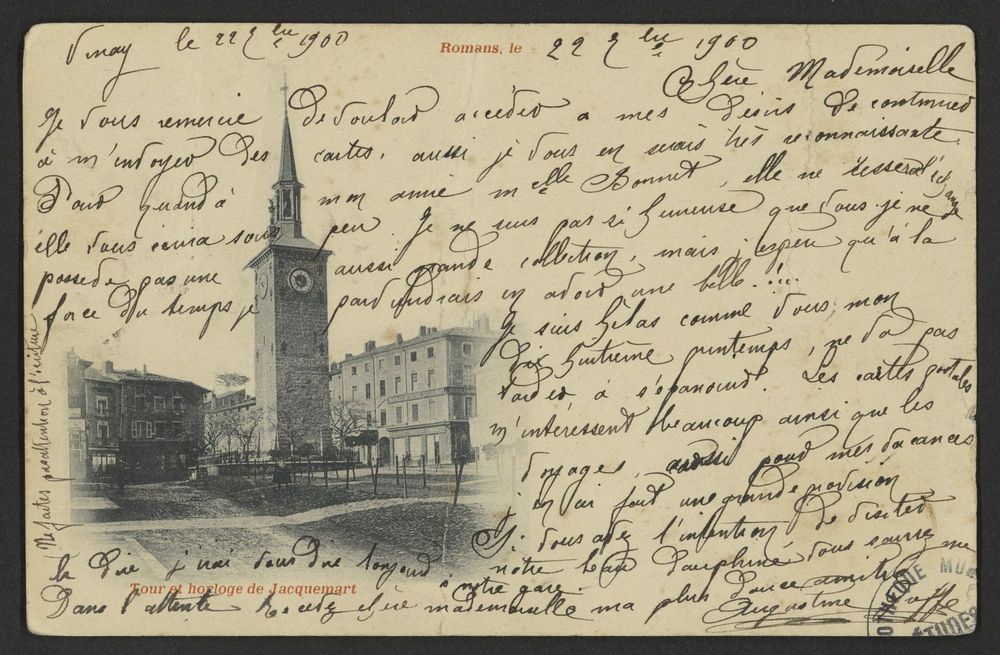 Vinay le 22 7bre 1900
Romans, le 22 7bre 1900
Chère Mademoiselle
Je vous remercie de vouloir accéder a mes désirs de continuer
à m'envoyer des cartes, aussi je vous en serais très reconnaissante.
Pour quand à mon amie melle Bonnet, elle ne
elle vous écrira sous peu. Je ne suis pas si heureuse que vous je ne
possède pas une aussi grande collection, mais j'espère qu'à la
force du temps je parviendrais en avoir une belle!...
Je suis hélas comme vous, mon
dix huitième printemps, ne va pas
tarder à s'épanouir. Les cartes postales
m'intéressent beaucoup ainsi que les
voyages, aussi pour mes vacances
j'en ai fait une grande provision
Si vous avez l'intention de visiter
notre beau Dauphiné vous saurez me
le dire j'irai vous dire bonjour à notre gare.
Dans l'attente Recevez chère mademoiselle ma plus douce amitié
Augustine
Ne faites pas attention à l'écriture
Tour et horloge de Jacquemart
OTHÈQUE MU
ÉTUDES